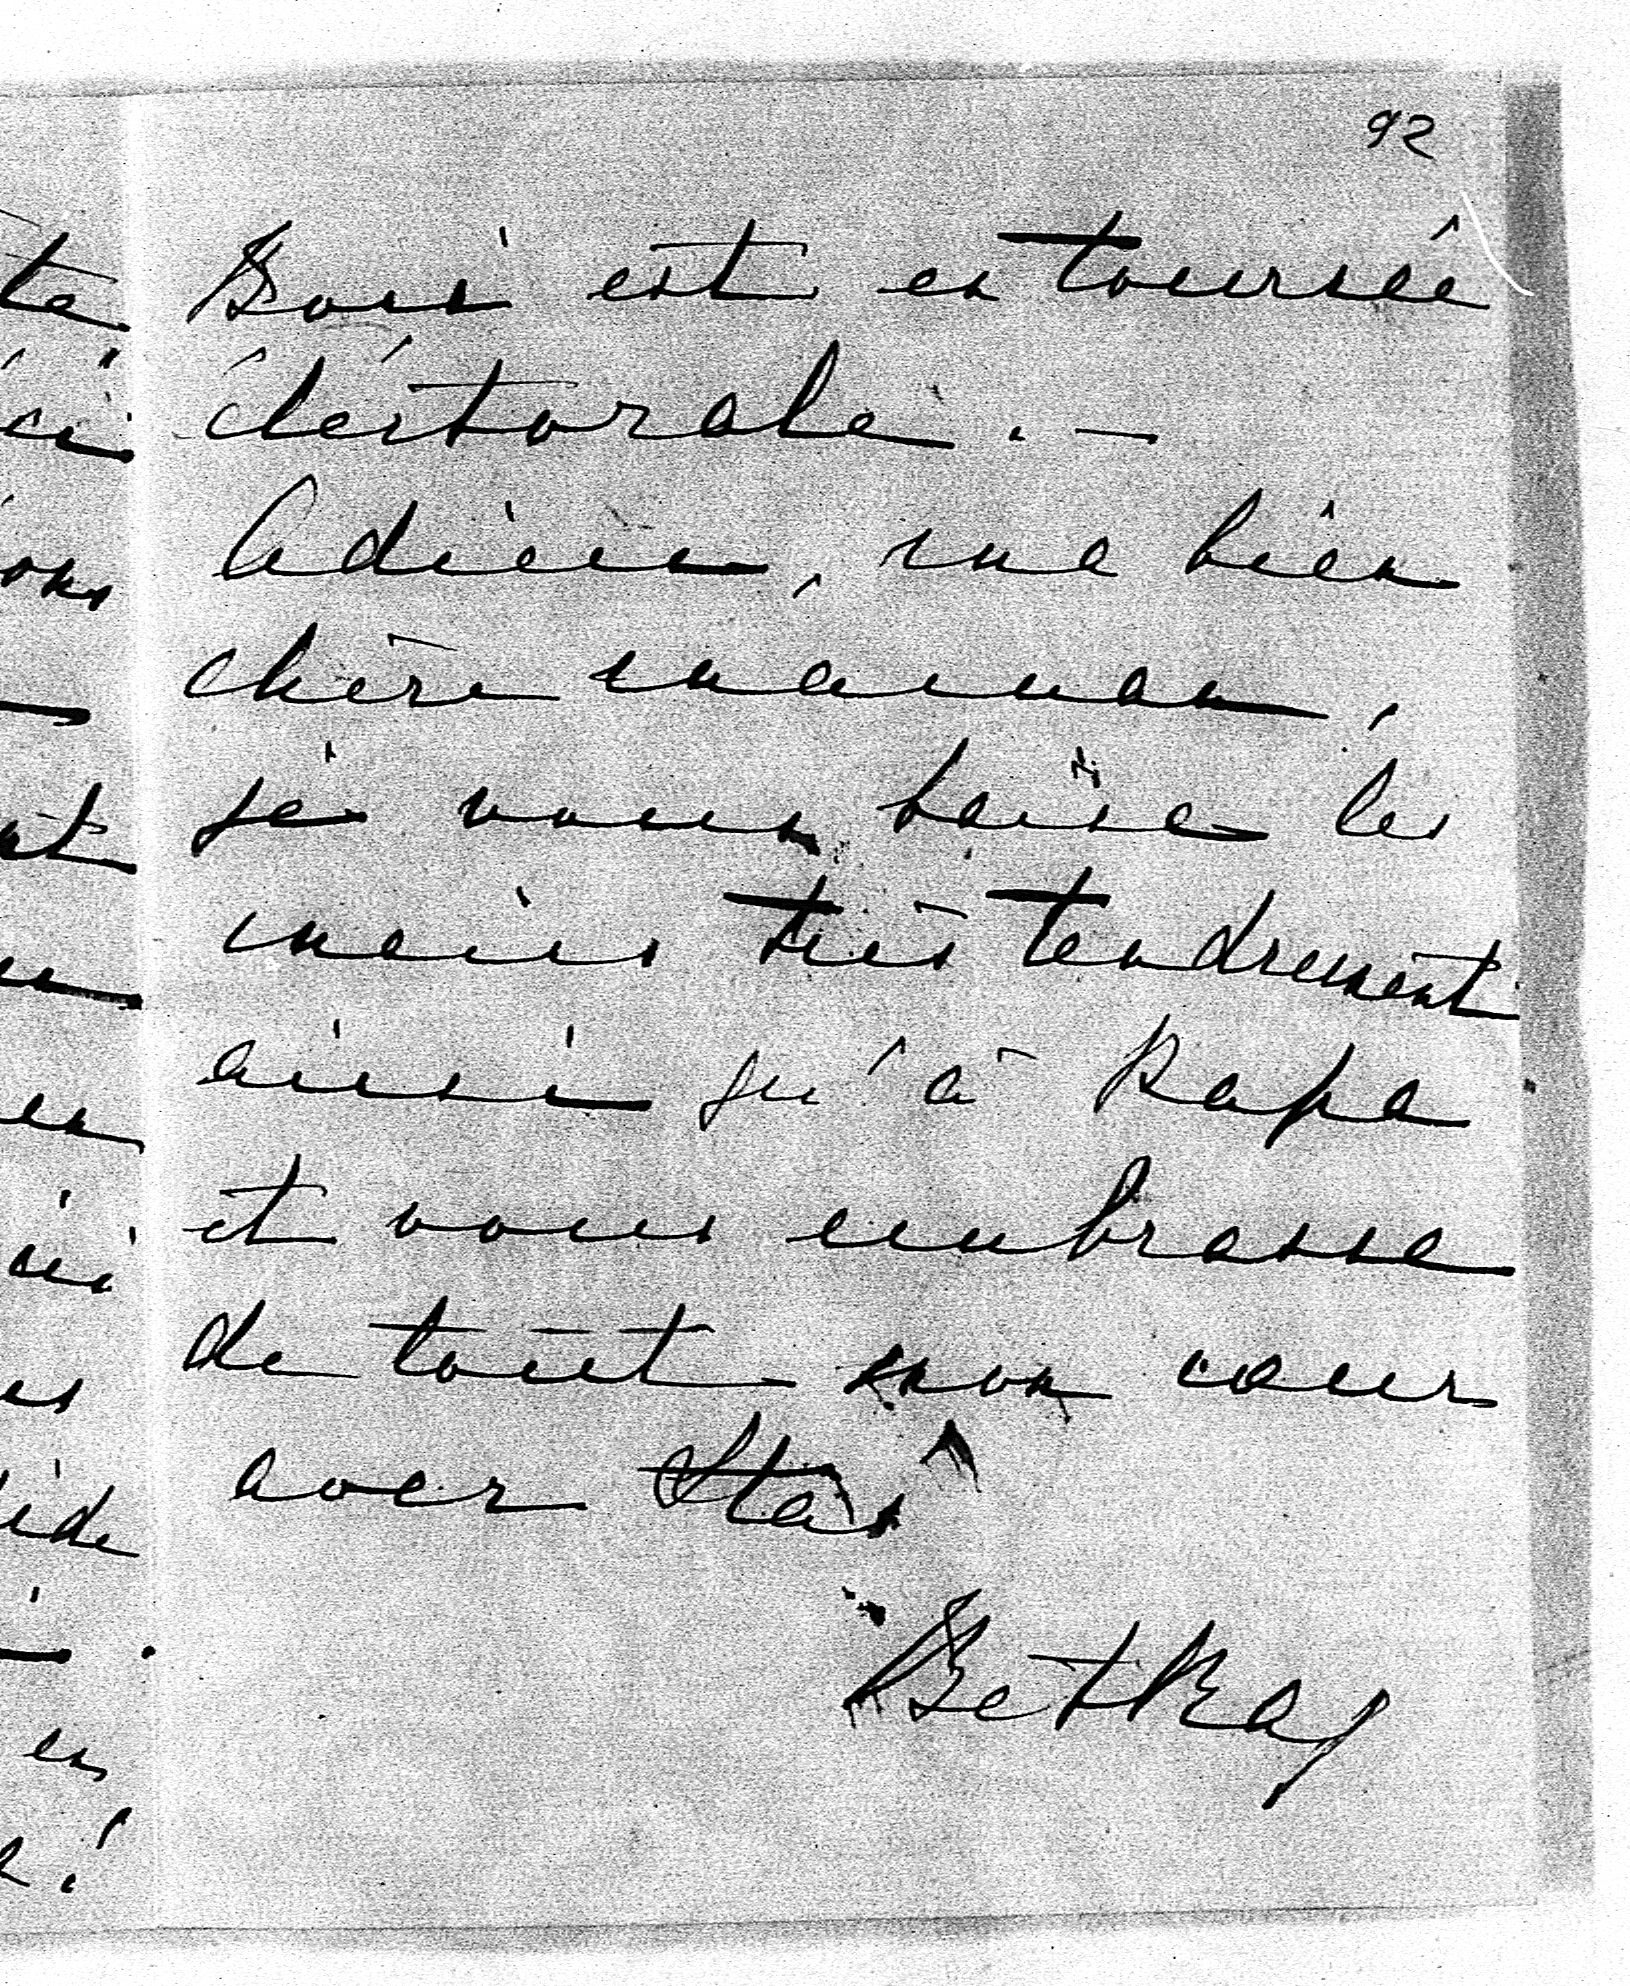 92
est en tournée
électorale. —
Adieu, ma bien
chère maman,
je vous baise les
mains très tendrement
ainsi qu'à Papa
et vous embrasse
de tout mon cœur
avec Stas
BetKa